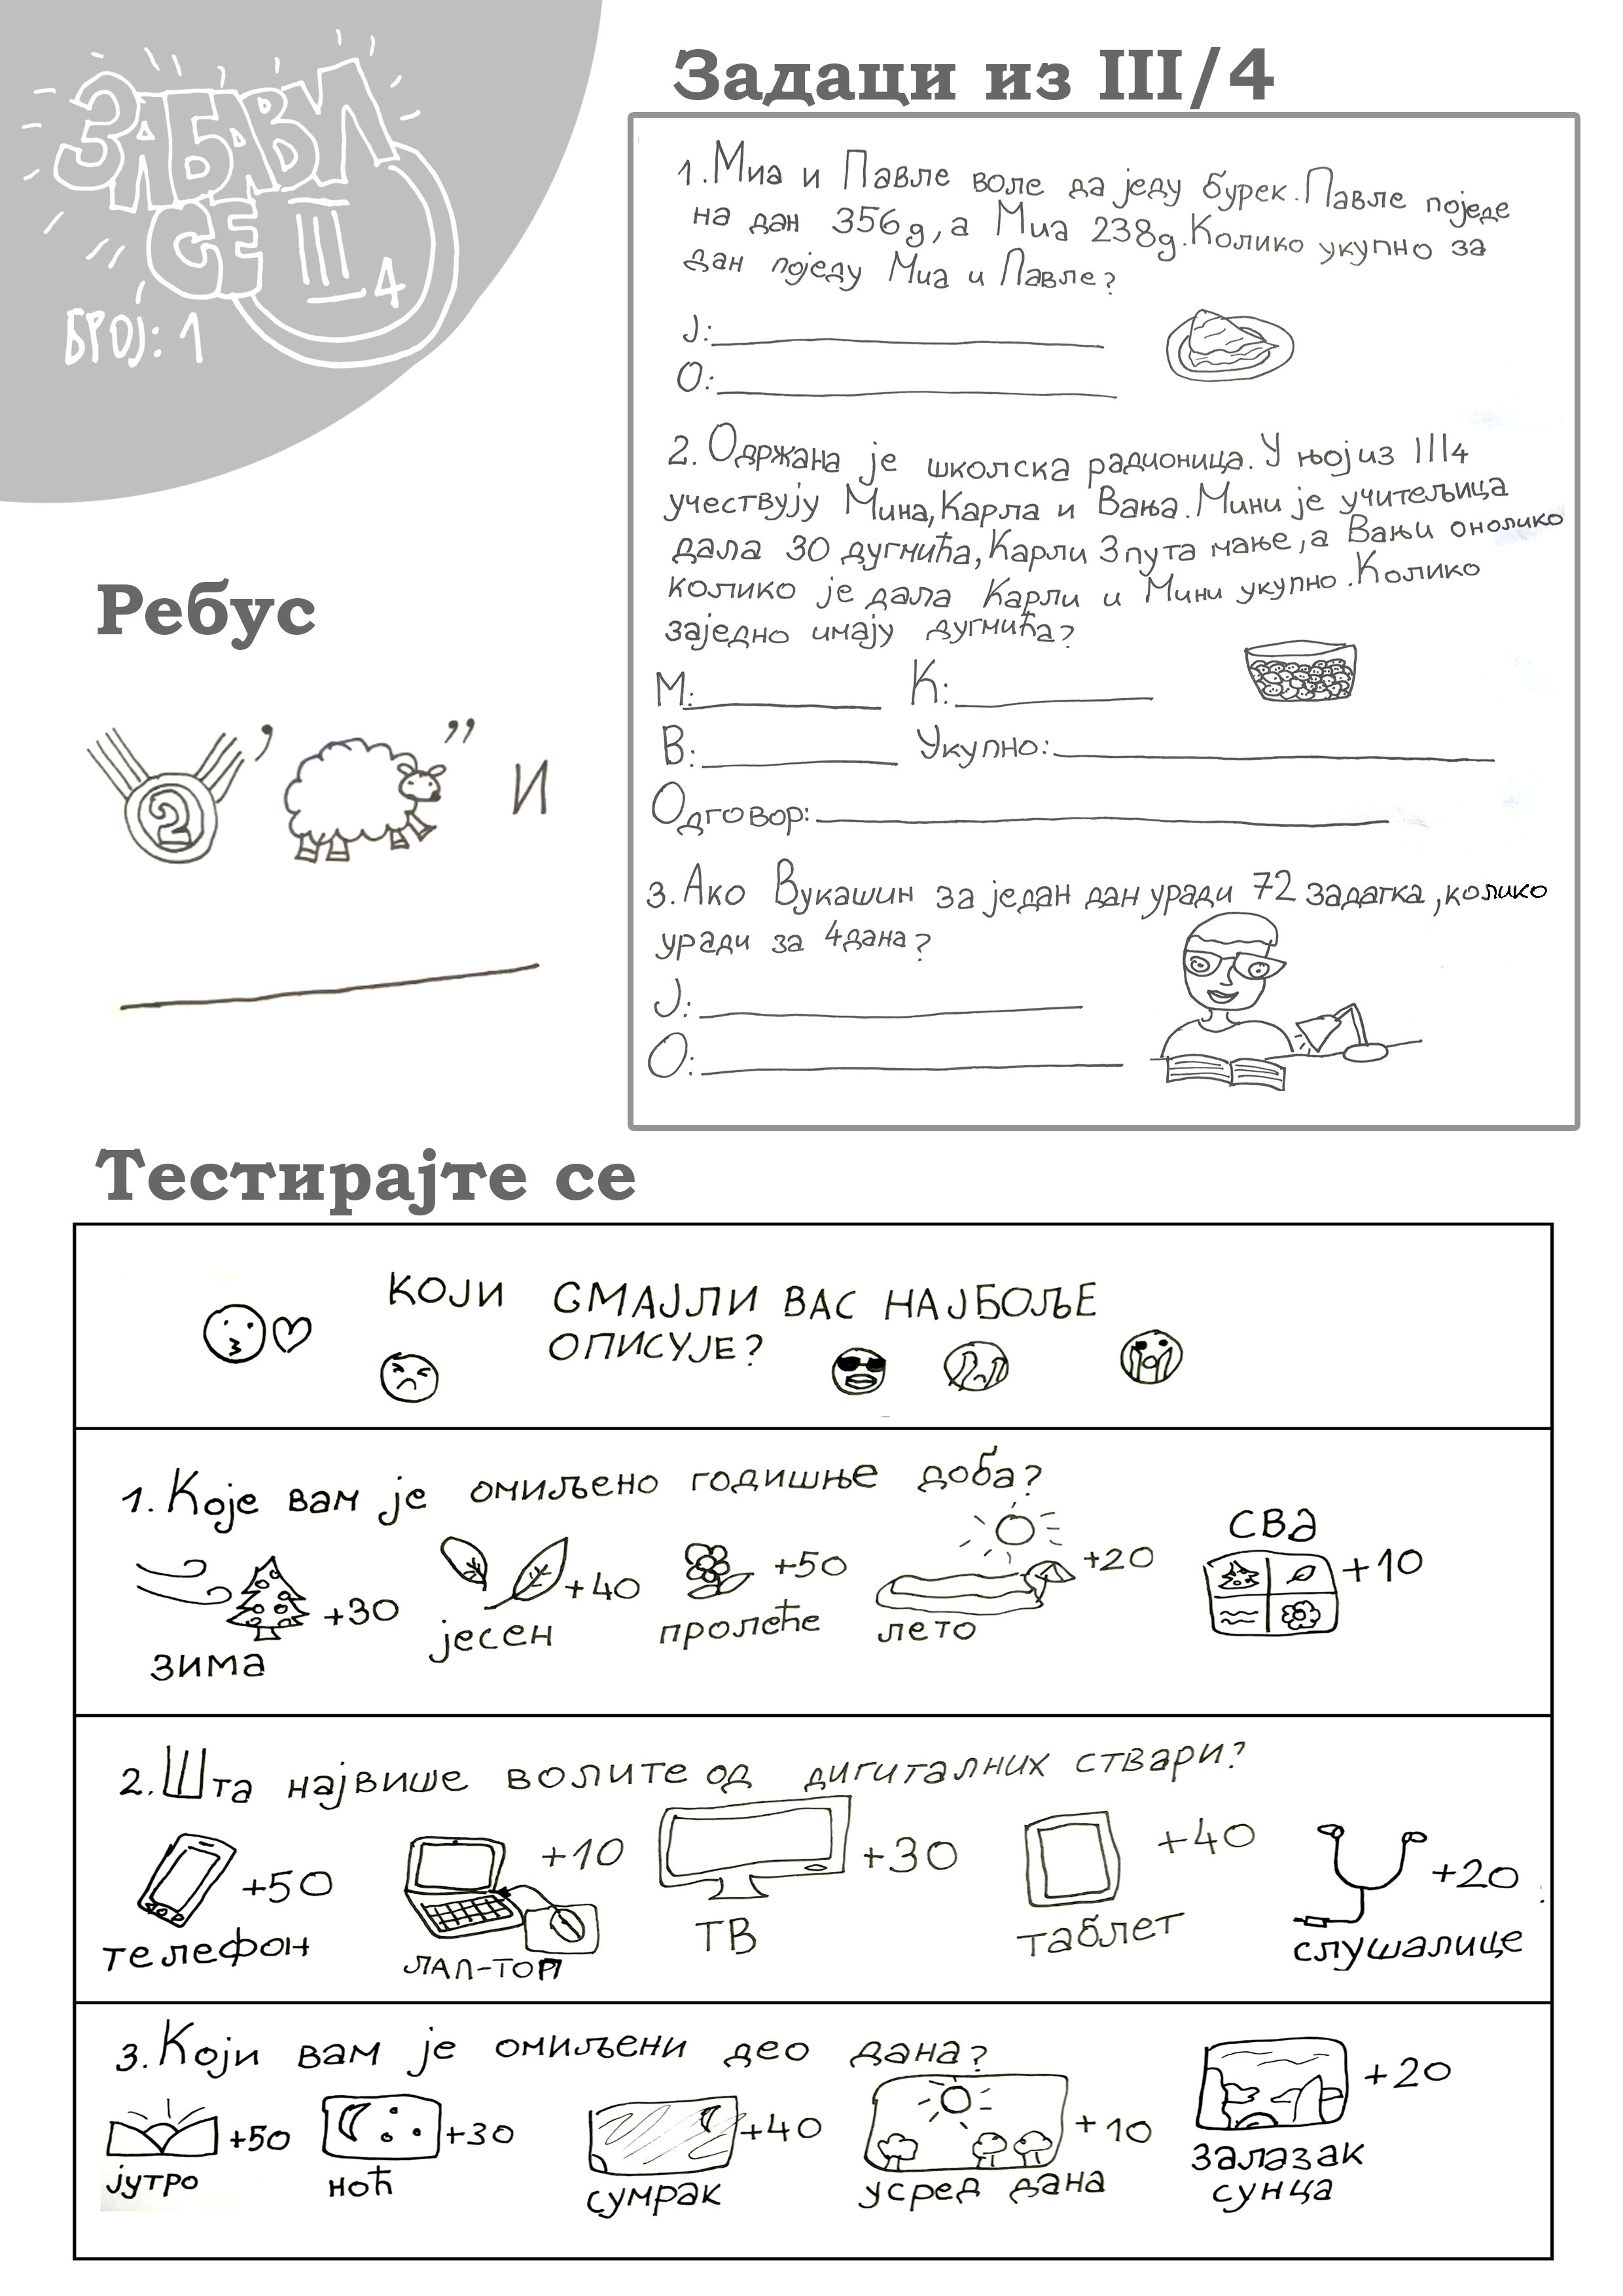 ЗАБАВИ
СЕ III4
БРОЈ: 1
Задаци из III/4
1. Миа и Павле воле да једу бурек. Павле поједе
на дан 356g, а Миа 238g. Колико укупно за
дан поједу Миа и Павле?
Ј:
О:
2. Одржана је школска радионица. У њој из III4
учествују Мина, Карла и Вања. Мини је учитељица
дала 30 дугмића, Карли 3 пута мање, а Вањи онолико
колико је дала Карли и Мини укупно. Колико
заједно имају дугмића?
М: К:
В: Укупно:
Одговор:
3. Ако Вукашин за један дан уради 72 задатка, колико
уради за 4 дана?
Ј:
О:
Ребус
2 , ,, И
Тестирајте се
КОЈИ СМАЈЛИ ВАС НАЈБОЉЕ
ОПИСУЈЕ?
1. Које вам је омиљено годишње доба?
зима +30 јесен +40 пролеће +50 лето +20 СВА +10
2. Шта највише волите од дигиталних ствари?
телефон +50 ЛАП-ТОП +10 ТВ +30 таблет +40 слушалице +20
3. Који вам је омиљени део дана?
јутро +50 ноћ +30 сумрак +40 усред дана +10 залазак +20
сунца